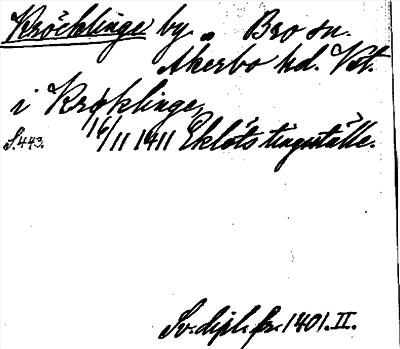 Kröcklinge by „ Bro sn.
Akerbo hd. Vst.
i Krøklinge,
S. 443. 16/11 1411 Eklöts tingställe.
Sv. dipl. fr. 1401. II.